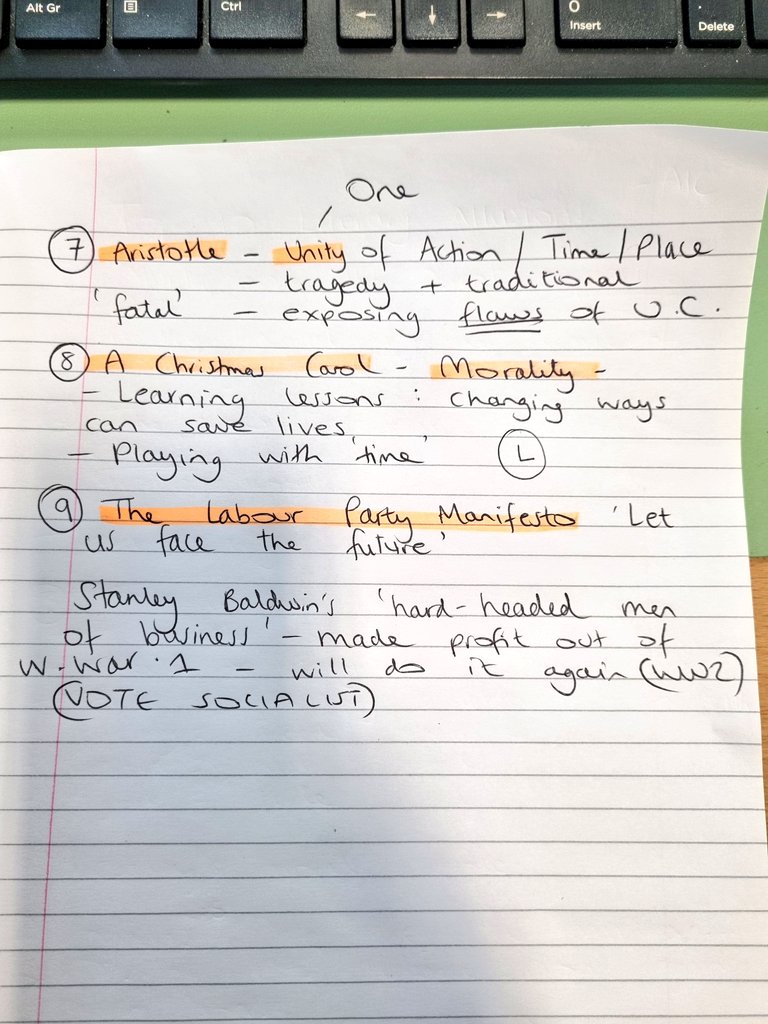 Alt Gr
Ctrl
←
↓
→
0
Insert
.
Delete
One
7 Aristotle - Unity of Action / Time / Place
- tragedy + traditional
'fatal' - exposing flaws of U.C.
8 A Christmas Carol - Morality -
- Learning lessons : changing ways
can save lives
- Playing with 'time' L
9 The Labour Party Manifesto 'Let
us face the future'
Stanley Baldwin's 'hard-headed men
of business' - made profit out of
W.War.1 - will do it again (WW2)
(VOTE SOCIALIST)